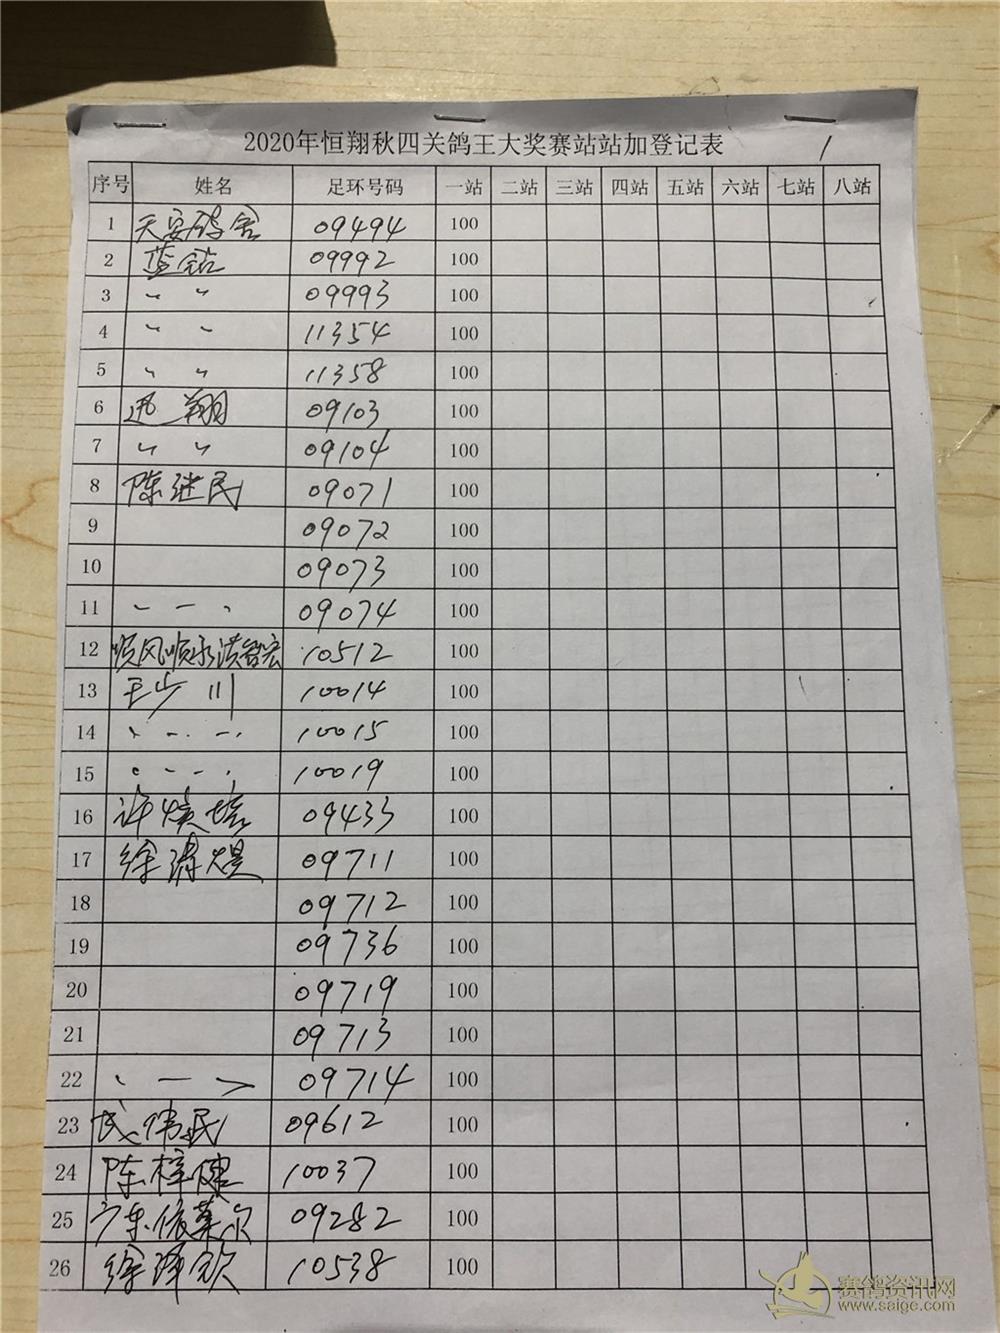 2020年恒翔秋四关鸽王大奖赛站站加登记表
序号 姓名 足环号码 一站 二站 三站 四站 五站 六站 七站 八站
1 天安鸽舍 09494 100
2 蓝钻 09992 100
3 〃 〃 09993 100
4 〃 〃 11354 100
5 〃 〃 11358 100
6 迅翔 09103 100
7 〃 〃 09104 100
8 陈继民 09071 100
9 09072 100
10 09073 100
11 09074 100
12 顺风顺水 10512 100
13 10014 100
14 10015 100
15 10019 100
16 许 09433 100
17 徐 09711 100
18 09712 100
19 09736 100
20 09719 100
21 09713 100
22 09714 100
23 伟民 09612 100
24 陈梓健 10037 100
25 广东依莱尔 09282 100
26 徐泽钦 10538 100
赛鸽资讯网
www.saige.com